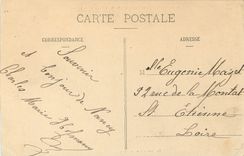 CARTE POSTALE
CORRESPONDANCE
ADRESSE
Souvenir
et bonjour de Nancy
Charles Marie
Mlle Eugénie
22 rue de la Montat
St. Étienne
Loire